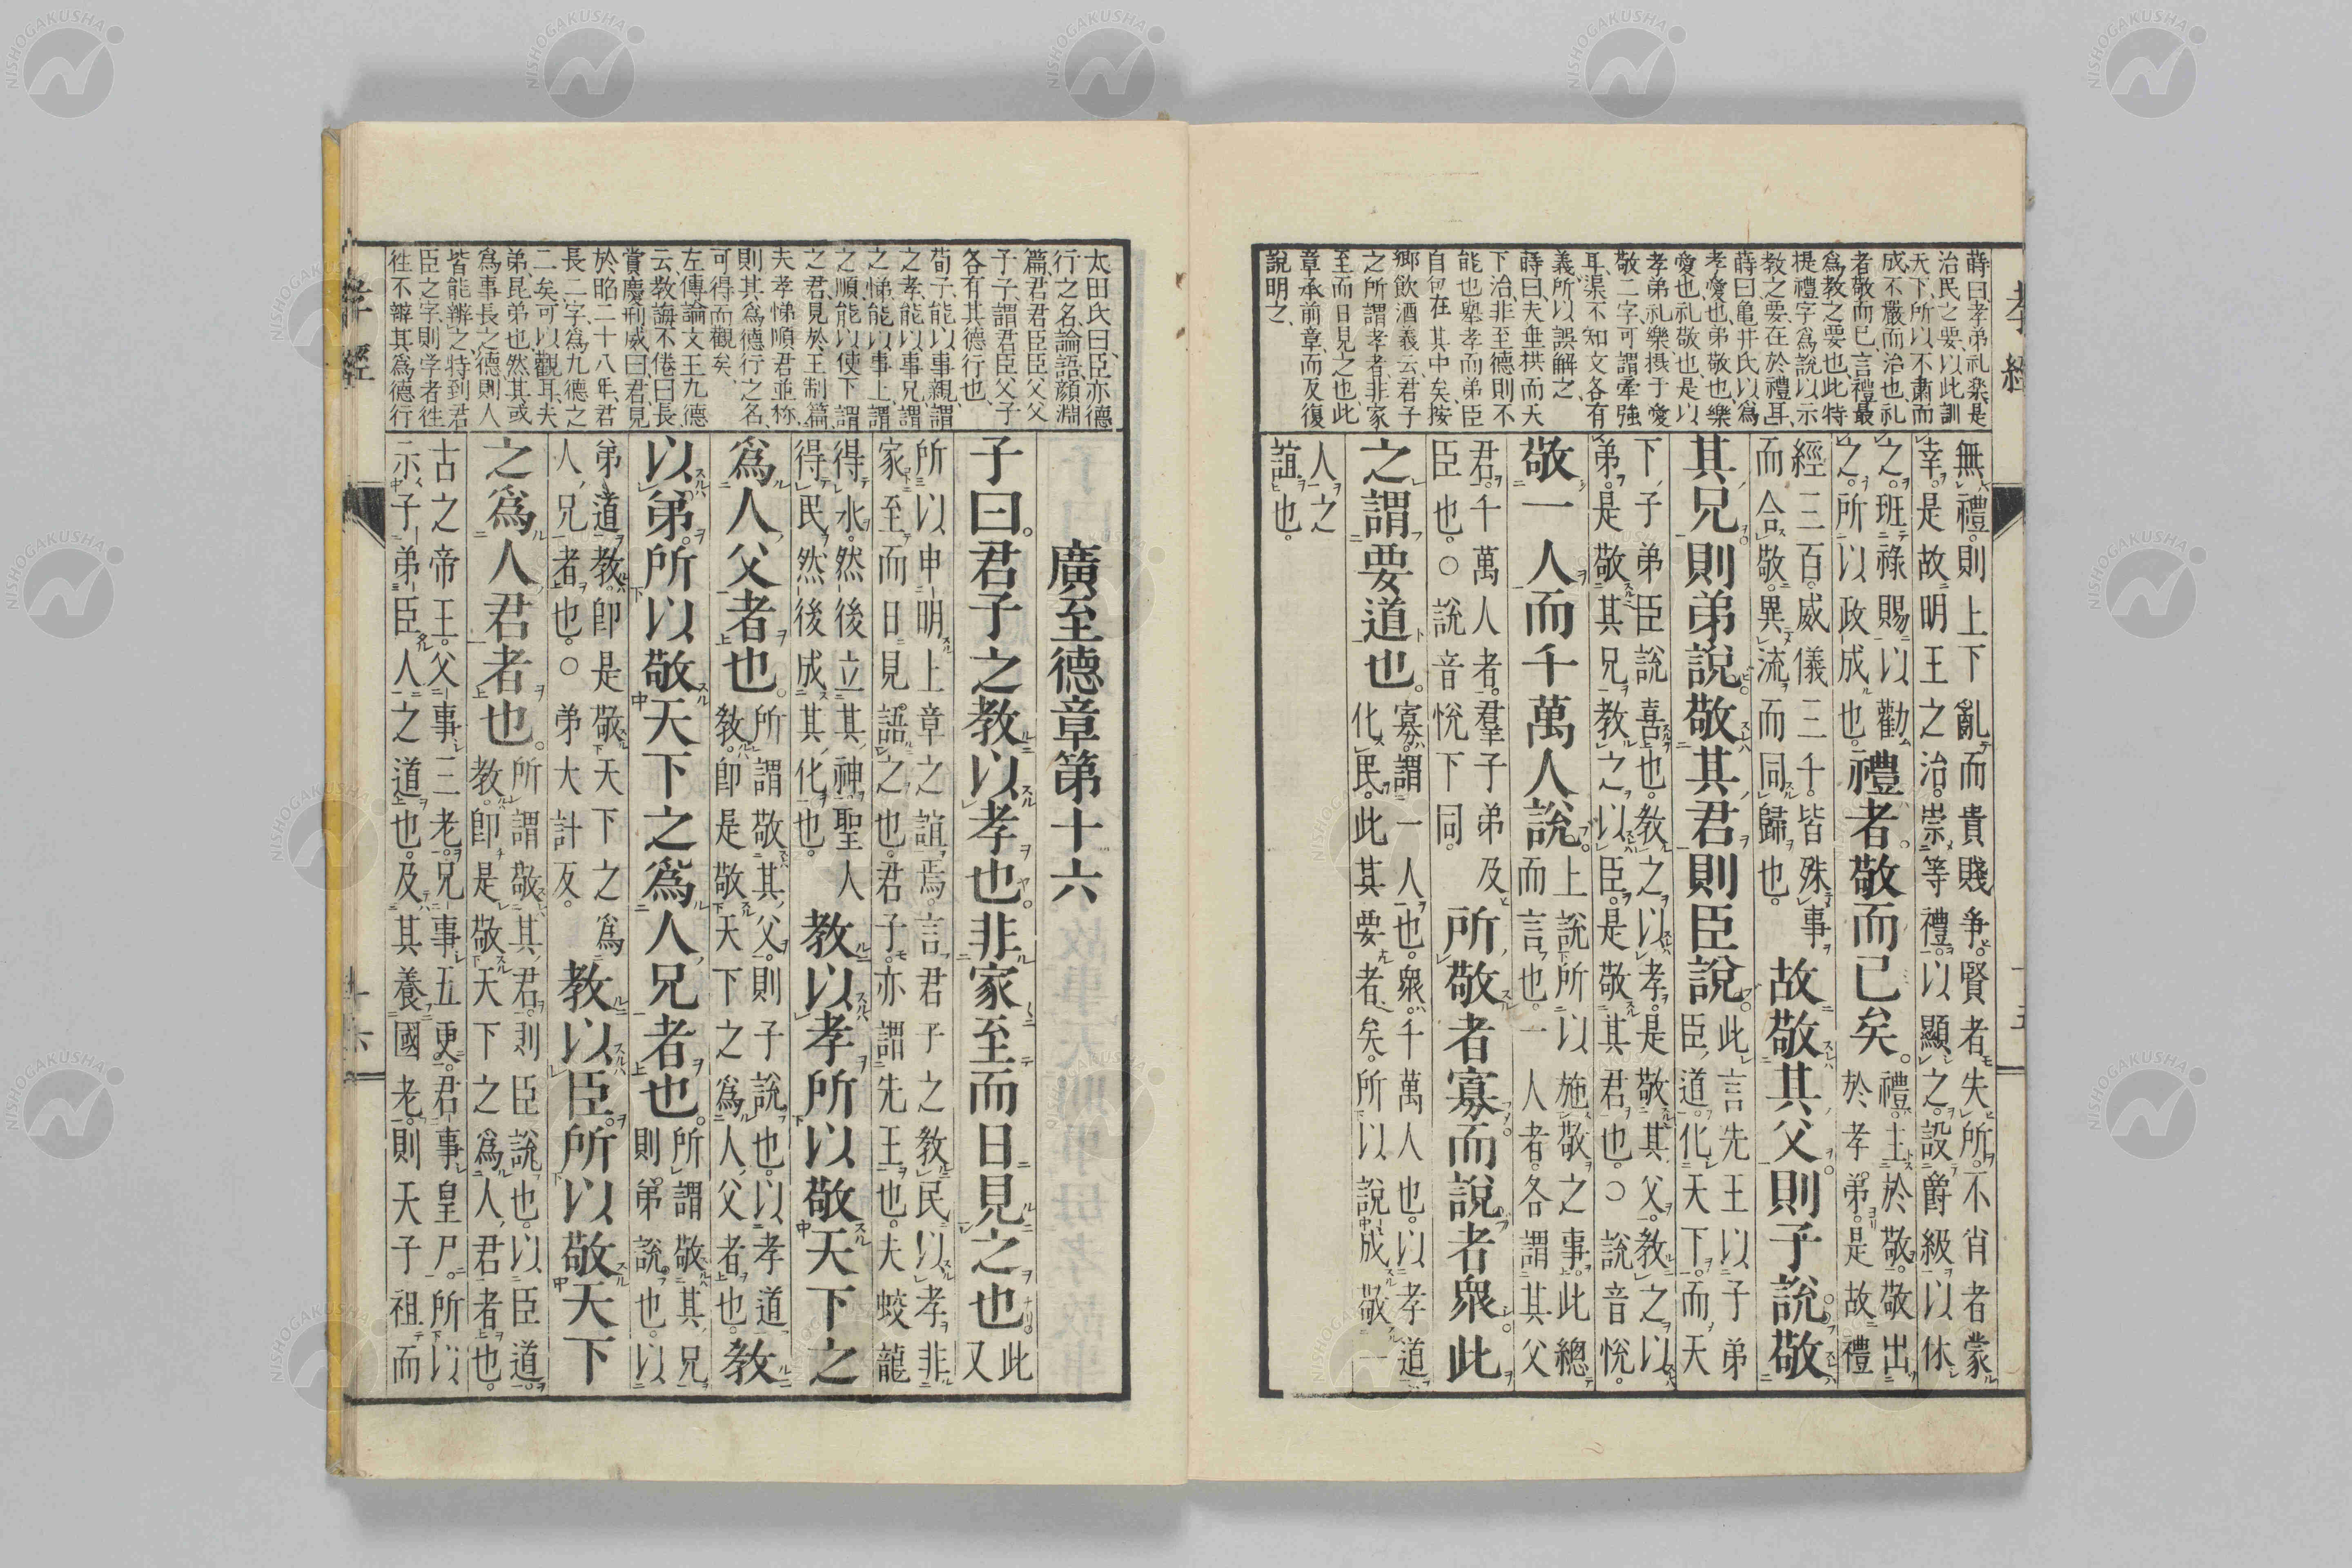 蒔曰孝弟礼楽是
治民之要以此訓
天下所以不肅而
成不嚴而治也礼
者敬而已言禮最
爲教之要也此特
提禮字爲說以示
教之要在於禮耳
蒔曰亀井氏以爲
孝愛也弟敬也樂
愛也礼敬也是以
孝弟礼樂摂于愛
敬二字可謂牽強
耳渠不知文各有
義所以誤解之
蒔曰夫垂拱而天
下治非至德則不
能也舉孝而弟臣
自包在其中矣按
鄉飲酒義云君子
之所謂孝者非家
至而日見之也此
章承前章而反復
說明之
無禮則上下亂而貴賤爭賢者失所不肖者蒙
幸是故明王之治崇等禮以顯之設爵級以休
之班祿賜以勸
之所以政成也
禮者敬而已矣
禮主於敬敬出
於孝弟是故禮
經三百威儀三千皆殊事
而合敬異流而同歸也
故敬其父則子說敬
其兄則弟說敬其君則臣說
此言先王以子弟
臣道化天下而天
下子弟臣說喜也教之以孝是敬其父教之以
弟是敬其兄教之以臣是敬其君也○說音悅
敬一人而千萬人說
上說所以施敬之事此總
而言也一人者各謂其父
君千萬人者羣子弟及
臣也○說音悅下同
所敬者寡而說者衆此
之謂要道也
寡謂一人也衆千萬人也以孝道
化民此其要者矣所以說成敬一
人之
誼也
孝經
太田氏曰臣亦德
行之名論語顏淵
篇君君臣臣父父
子子謂君臣父子
各有其德行也
荀子能以事親謂
之孝能以事兄謂
之悌能以事上謂
之順能以使下謂
之君見於王制篇
夫孝悌順君並称
則其爲德行之名
可得而觀矣
左傳論文王九德
云教誨不倦曰長
賞慶刑威曰君見
於昭二十八年君
長二字爲九德之
二矣可以觀耳夫
弟昆弟也然其或
爲事長之德則人
皆能辨之特到君
臣之字則学者往
往不辯其爲德行
廣至德章第十六
子曰君子之教以孝也非家至而日見之也
此
又
所以申明上章之誼焉言君子之教民以孝非
家至而日見語之也君子亦謂先王也夫蛟龍
得水然後立其神聖人
得民然後成其化也
教以孝所以敬天下之
爲人父者也
所謂敬其父則子說也以孝道
教即是敬天下之爲人父者也
教
以弟所以敬天下之爲人兄者也
所謂敬其兄
則弟說也以
弟道教即是敬天下之爲
人兄者也○弟大計反
教以臣所以敬天下
之爲人君者也
所謂敬其君則臣說也以臣道
教即是敬天下之爲人君者也
古之帝王父事三老兄事五更君事皇尸所以
示子弟臣人之道也及其養國老則天子祖而
孝經
十六